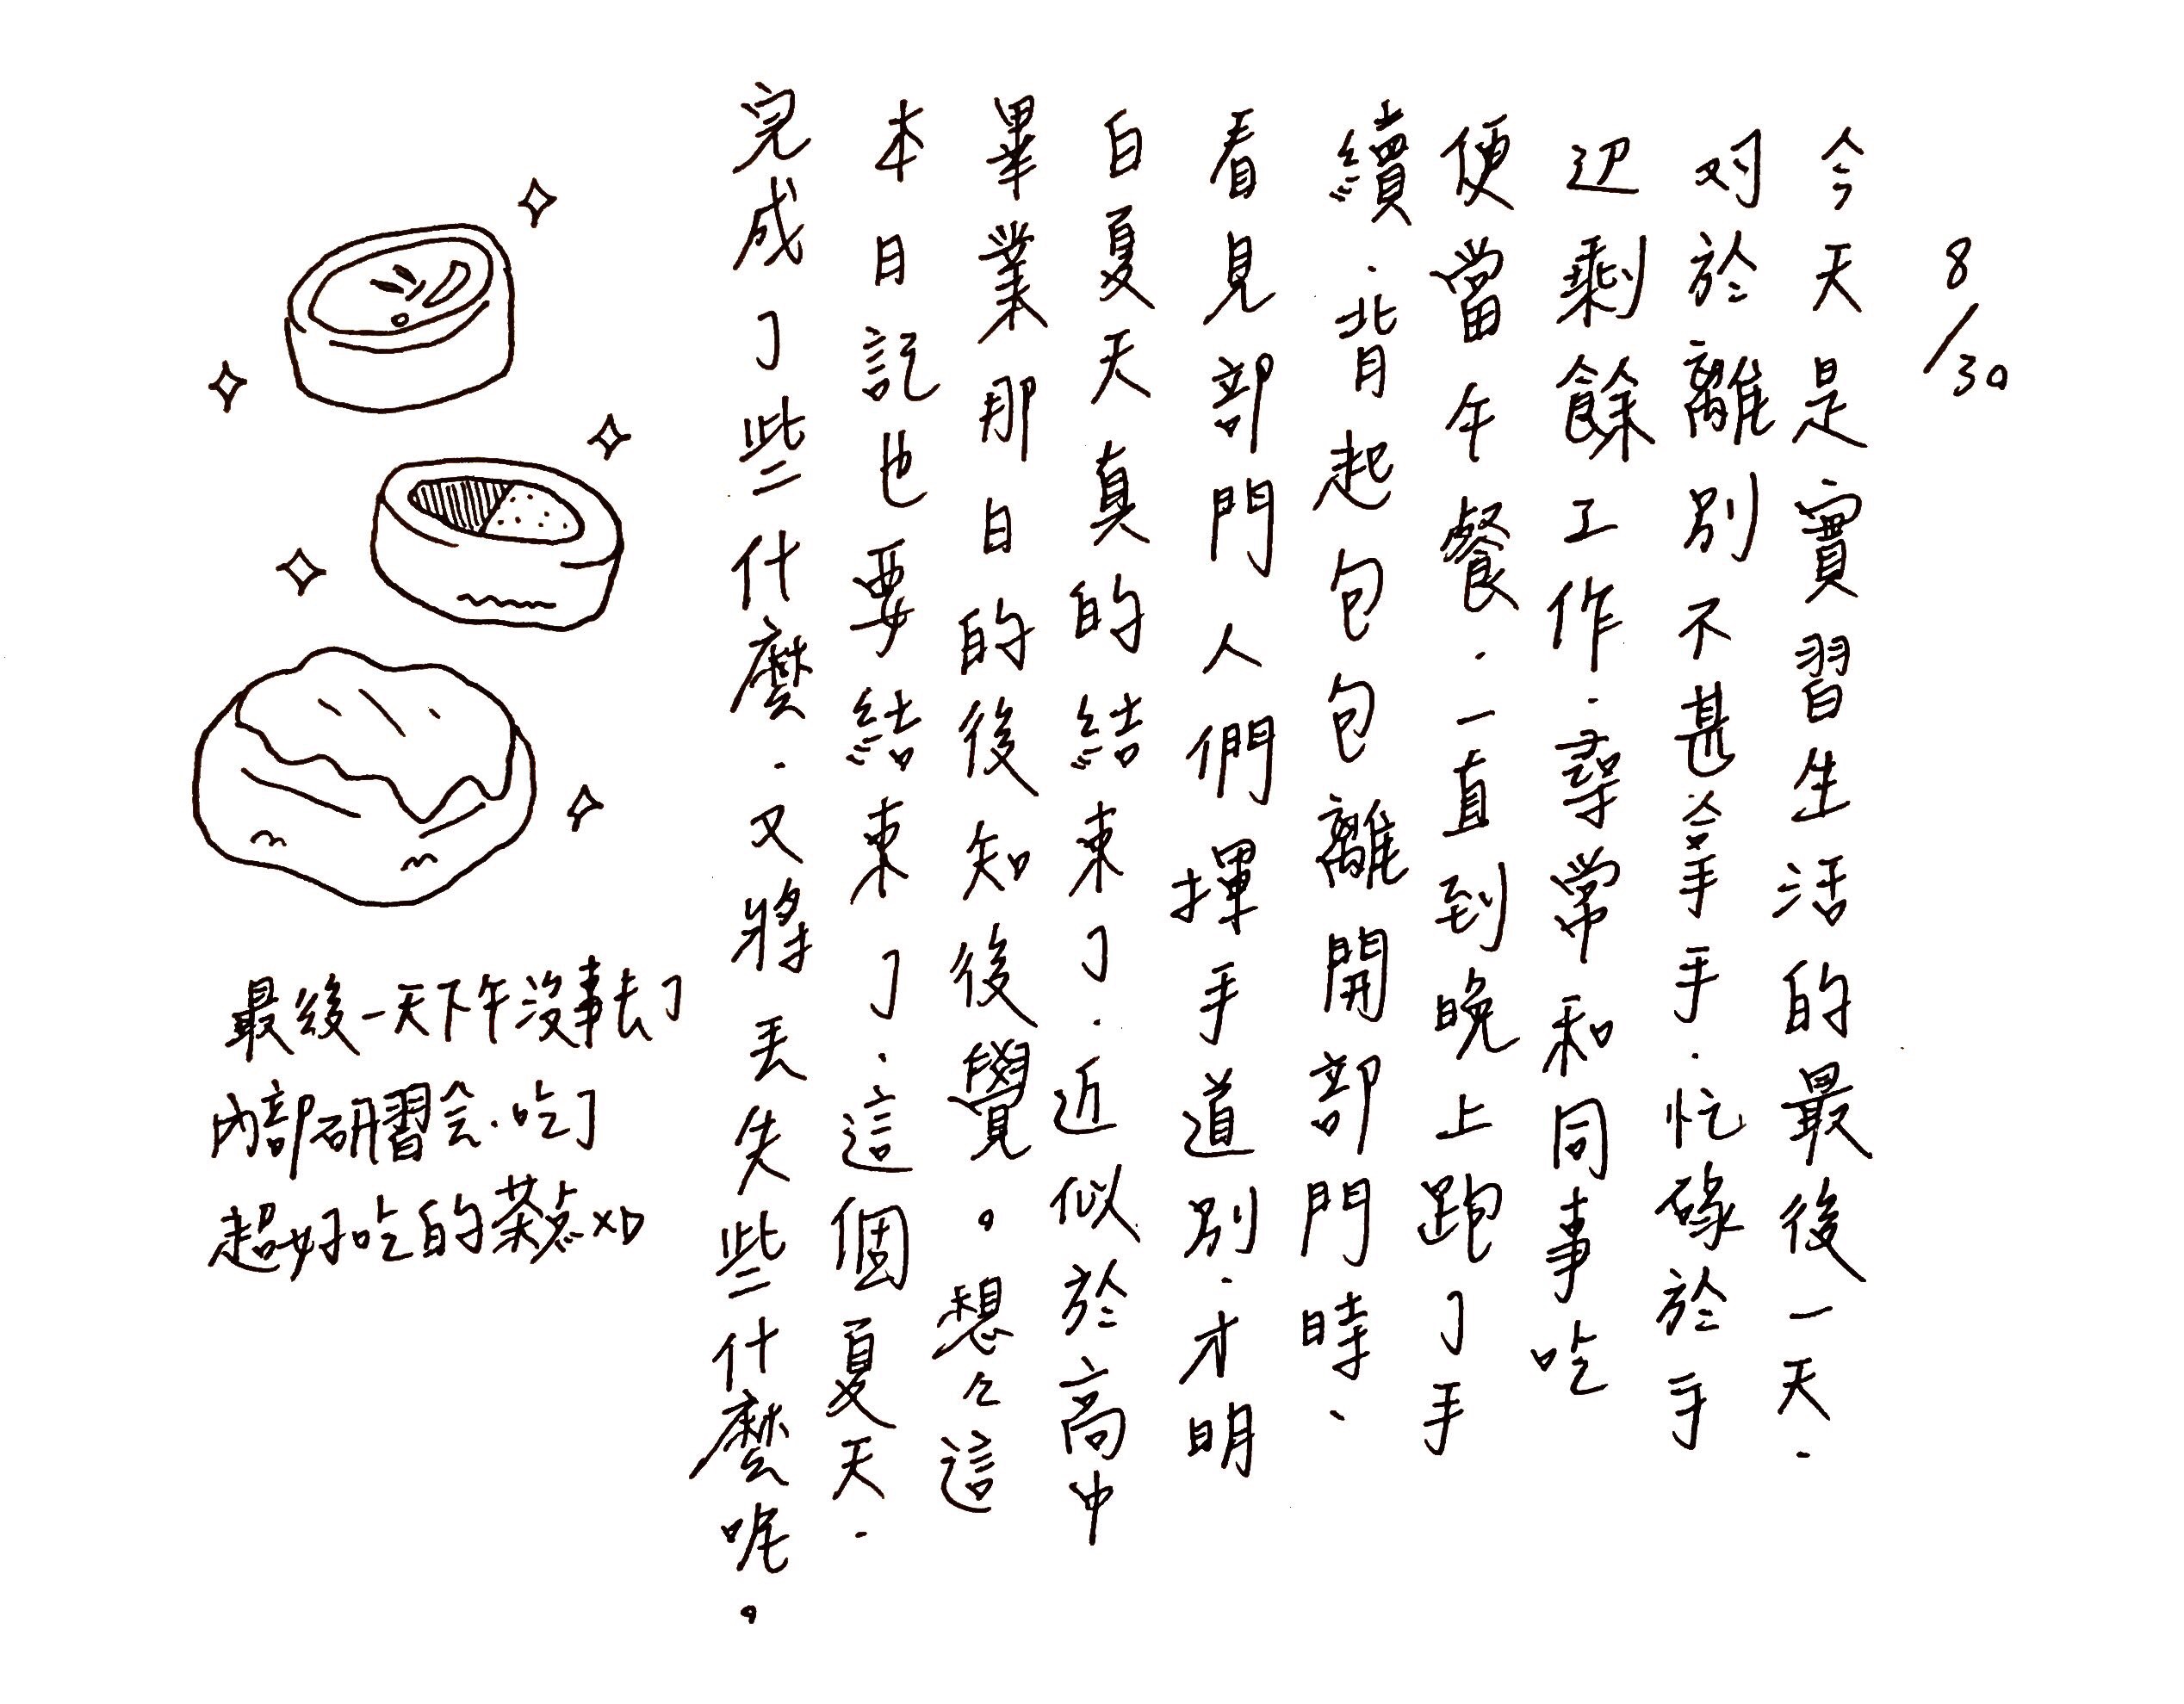 8/30
今天是實習生活的最後一天.
对於離別不甚拿手手.忙碌於手
边剩餘工作.尋常和同事吃
便當午餐.一直到晚上跑了手
續.背起包包離開部門時、
看見部門人們揮手道別.才明
白夏天真的結束了.近似於高中
畢業那日的後知後覺。想々這
本日記也要結束了.這個夏天.
完成了些什麼.又將丟失些什麼呢。
最後一天下午沒事去了
內部研習会.吃了
超好吃的茶点xD